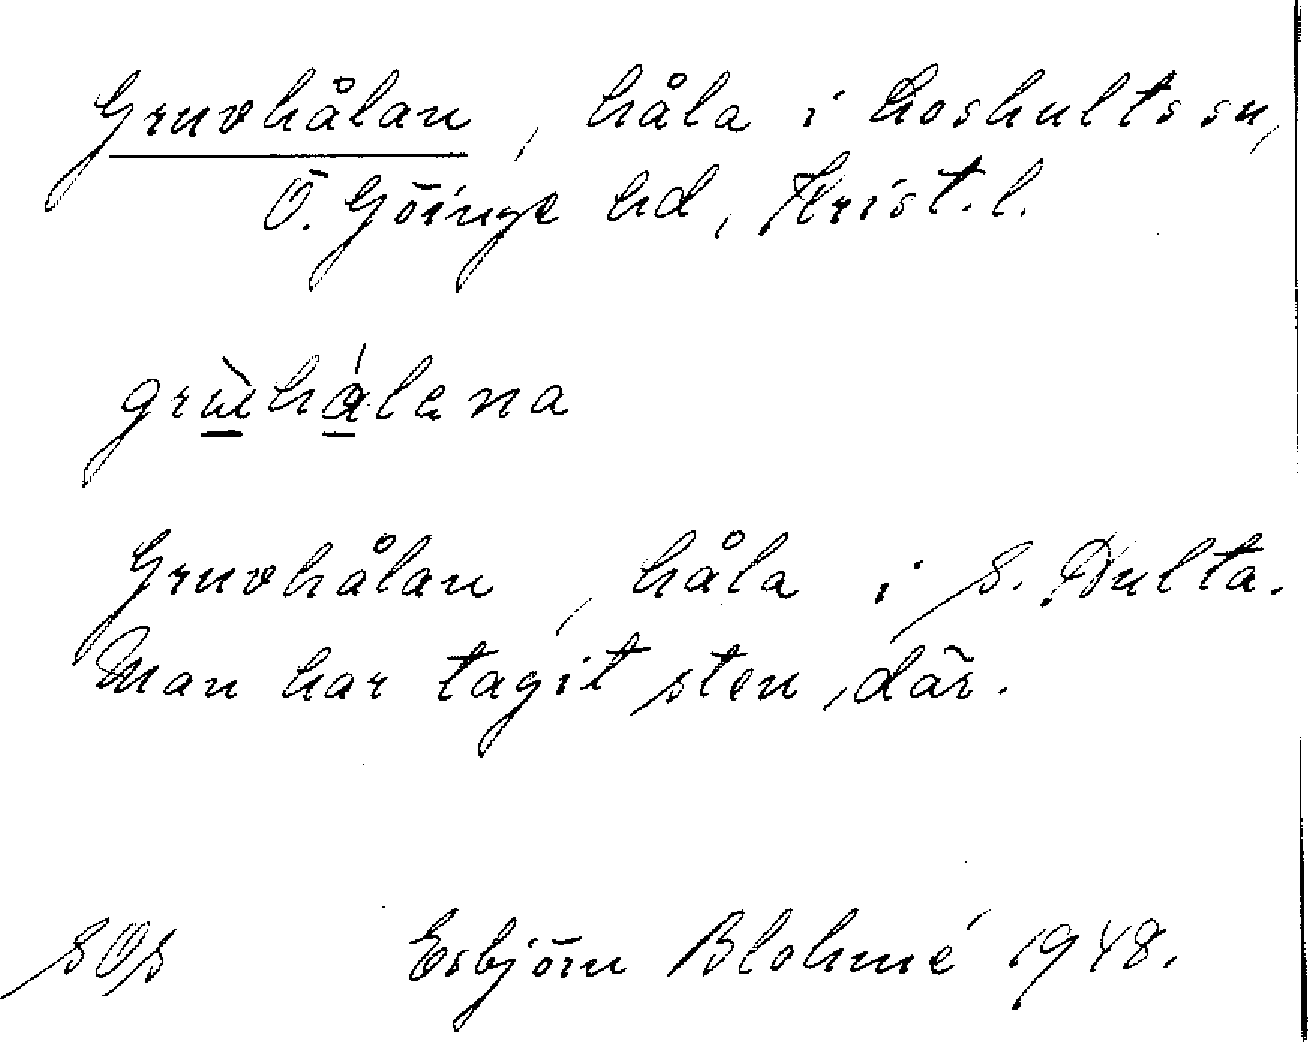 Gruvhålan, håla i Loshults sn,
Ö. Göinge hd, Krist. l.
Gruvhålan, håla i S. Hulta.
Man har tagit sten där.
SOS Esbjörn Blohmé 1948.